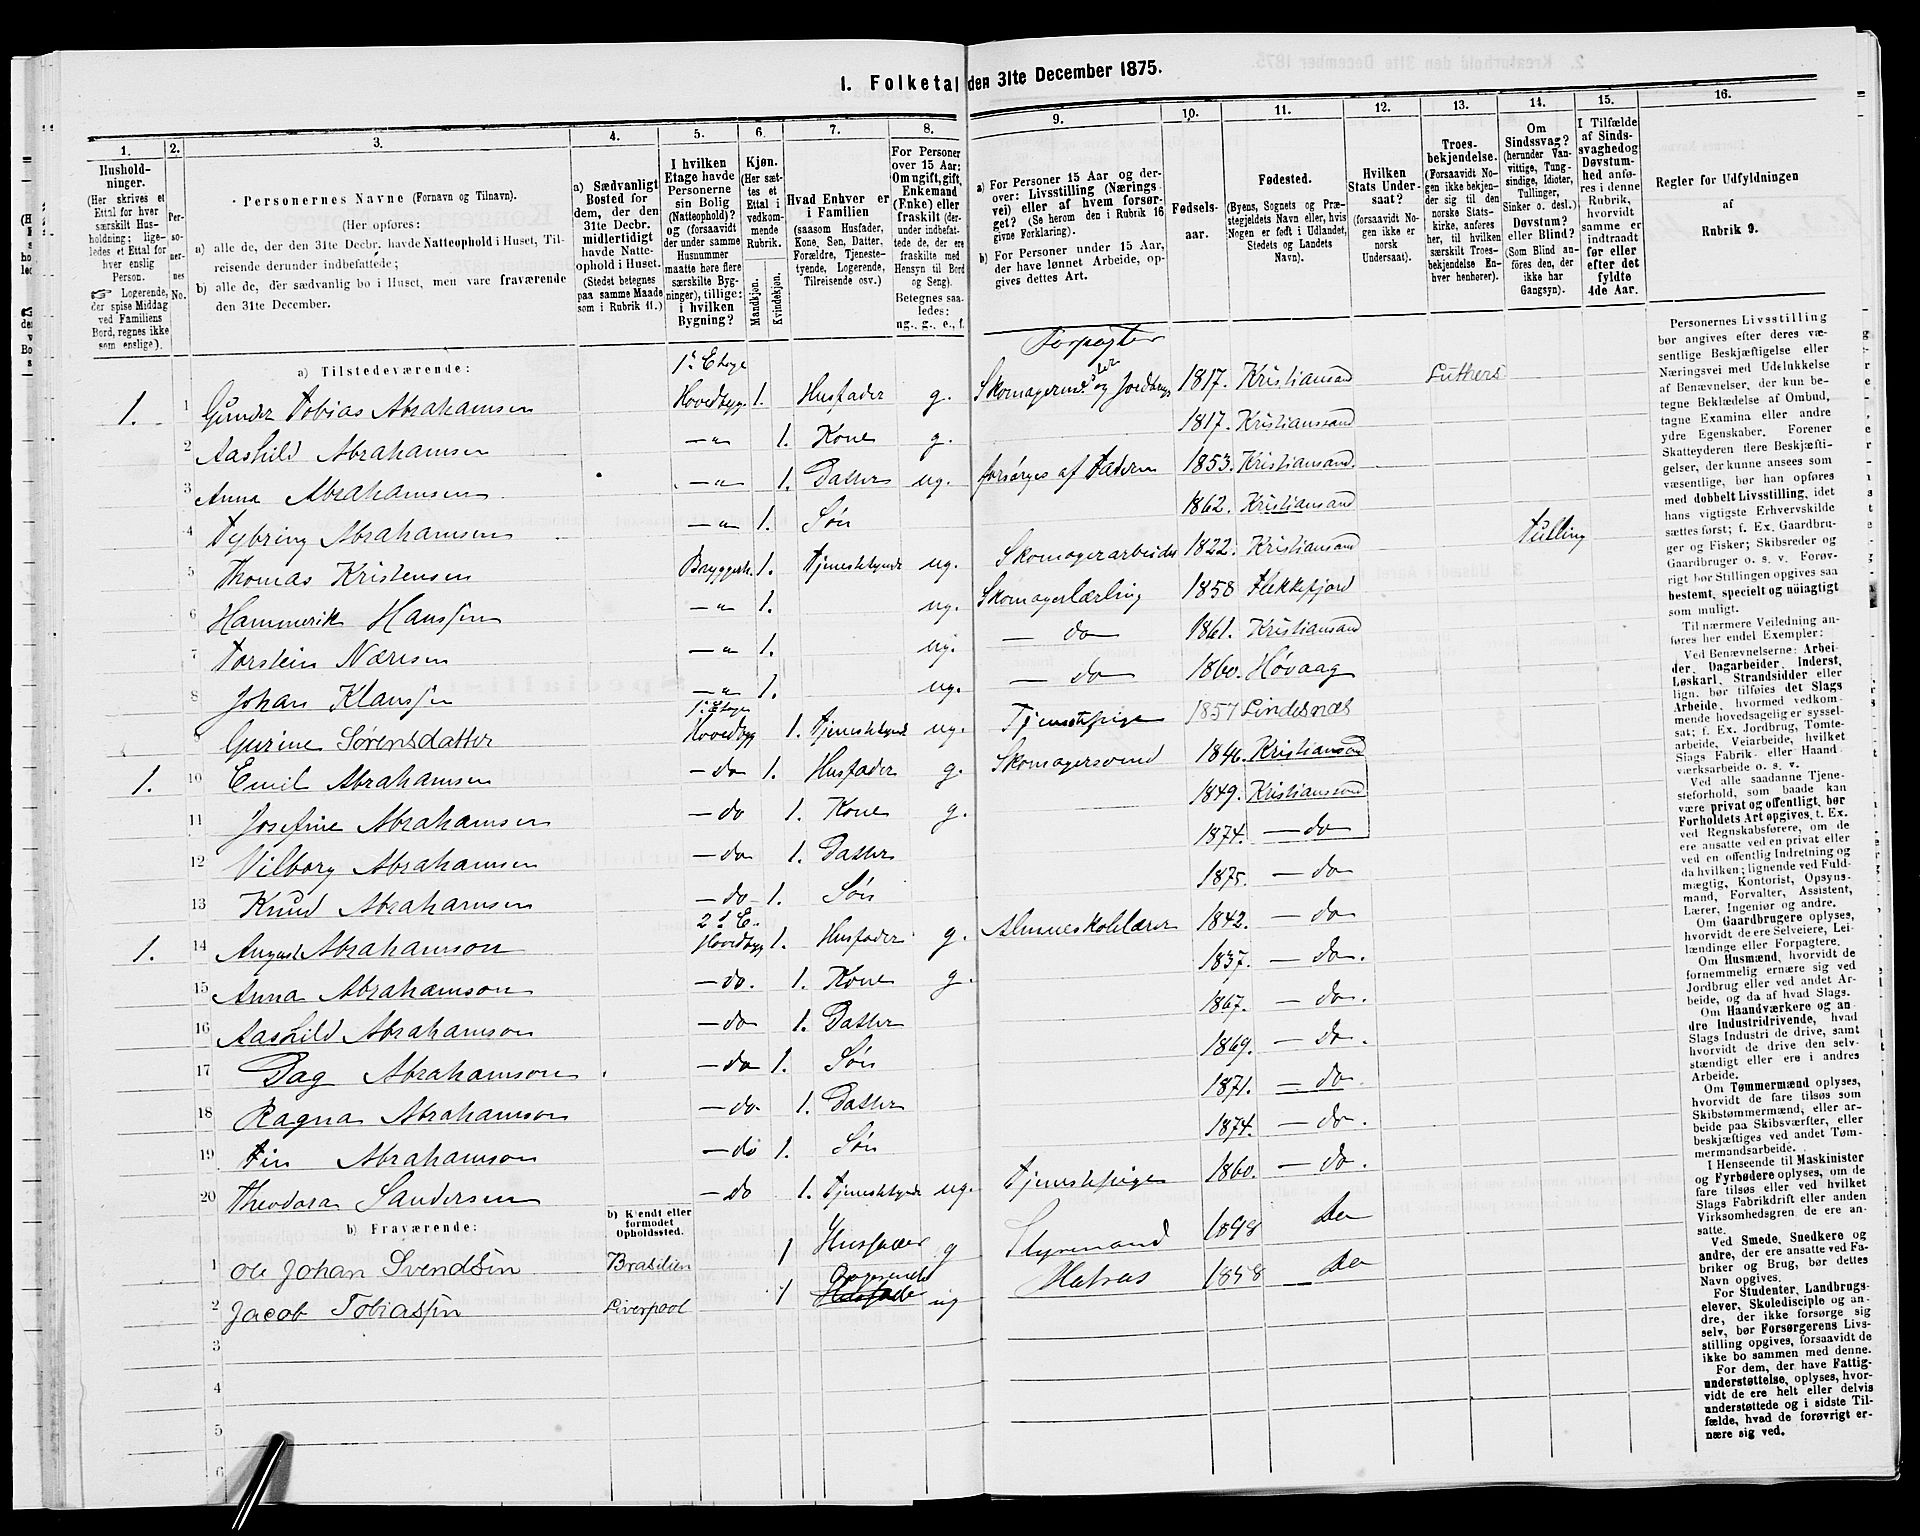 1. Folketal den 31te December 1875.
1. 2. 3. 4. 5. 6. 7. 8. 9. 10. 11. 12. 13. 14. 15. 16.
Hushold-
ninger.
(Her skrives et
Ettal for hver
særskilt Hus-
holdning; lige-
ledes et Ettal for
hver enslig
Person.
☞ Logerende,
der spise Middag
ved Familiens
Bord, regnes ikke
som enslige).
Per-
so-
ner-
nes
No.
Personernes Navne (Fornavn og Tilnavn).
(Her opføres:
a) alle de, der den 31te Decbr. havde Natteophold i Huset, Til-
reisende derunder indbefattede;
b) alle de, der sædvanlig bo i Huset, men vare fraværende
den 31te December.
a) Sædvanligt
Bosted for
dem, der den
31te Decbr.
midlertidigt
havde Natte-
ophold i Huset.
(Stedet betegnes
paa samme Maade
som i Rubrik 11.)
I hvilken
Etage havde
Personerne
sin Bolig
(Natteophold)?
og (forsaavidt
der under samme
Husnummer
maatte høre flere
særskilte Byg-
ninger), tillige:
i hvilken
Bygning?
Kjøn.
(Her sæt-
tes et
Ettal i
vedkom-
mende
Rubrik.
Mandkjøn.
Kvindekjøn.
Hvad Enhver er
i Familien
(saasom Husfader,
Kone, Søn, Datter,
Forældre, Tjeneste-
tyende, Logerende,
Tilreisende osv.)
For Personer
over 15 Aar:
Om ugift, gift,
Enkemand
(Enke) eller
fraskilt (der-
under indbefat-
tede de, der ere
fraskilte med
Hensyn til Bord
og Seng).
Betegnes saa-
ledes:
ug., g., e., f.
a) For Personer 15 Aar og der-
over: Livsstilling (Nærings-
vei) eller af hvem forsør-
get? (Se herom den i Rubrik 16
givne Forklaring).
b) For Personer under 15 Aar,
der have lønnet Arbeide, op-
gives dettes Art.
Fødsels-
aar.
Fødested.
(Byens, Sognets og Præ-
stegjeldets Navn eller, hvis
Nogen er født i Udlandet,
Stedets og Landets
Navn).
Hvilken
Stats Under-
saat?
(forsaavidt No-
gen ikke er
norsk
Undersaat).
Troes-
bekjendelse.
(Forsaavidt No-
gen ikke bekjen-
der sig til den
norske Stats-
kirke, anføres
her, til hvilken
særskilt Troes-
bekjendelse En-
hver henhører).
Om
Sindssvag?
(herunder Van-
vittige, Tung-
sindige, Idioter,
Tullinger,
Sinker o. desl.)
Døvstum?
eller Blind?
(Som Blind an-
føres den, der
ikke har
Gangsyn).
I Tilfælde
af Sinds-
svaghed og
Døvstum-
hed anfø-
res i denne
Rubrik,
hvorvidt
samme er
indtraadt
før eller
efter det
fyldte
4de Aar.
Regler for Udfyldningen
af
Rubrik 9.
a) Tilstedeværende:
Forpagter
1. 1 Gunder Tobias Abrahamsen 1ste Etage Hovedbygg. 1. Husfader g. Skomagermester og Jordbrug 1817. Kristiansand Luthers
2 Aashild Abrahamsen —"— 1. Kone g. 1817. Kristianssand
3 Anna Abrahamsen —"— 1. Datter ug. forsørges af Faderen 1853. Kristiansand.
4 Tybring Abrahamsen —"— 1. Søn 1862. Kristiansand
5 Thomas Kristensen Bryggerh. 1. Tjenestetyende ug. Skomagerarbeider 1822. Kristiansand Tulling
6 Hammerik Hanssen —"— 1. ug. Skomagerlærling 1858 Flekkefjord
7 Torstein Næresen —"— 1. ug. — do 1861. Kristiansand
8 Johan Klaussen —"— 1. ug. — do 1860. Høvaag
9 Gurine Sørensdatter 1ste Etage Hovedbyg 1. Tjenestetyende ug. Tjenestepige 1857 Lindesnæs
1. 10 Emil Abrahamsen — do 1. Husfader g. Skomagersvend 1846. Kristiansand
11 Josefine Abrahamsen — do 1. Kone g. 1849. Kristianssand
12 Vilborg Abrahamsen — do 1. Datter 1874. — do
13 Knud Abrahamsen — do 1. Søn 1875. — do
1. 14 August Abrahamson 2d E. Hovedbygg 1. Husfader g. Almueskolelærer 1842. — do
15 Anna Abrahamson — do. 1. Kone g. 1837. — do.
16 Aashild Abrahamson — do 1. Datter 1867. — do.
17 Dag Abrahamson — do 1. Søn 1869. — do.
18 Ragna Abrahamson — do 1. Datter 1871. — do.
19 Fin Abrahamson — do 1. Søn 1874. — do.
20 Theodora Sandersen — do 1. Tjenestetyende ug. Tjenestepige 1860. — do.
b) Fraværende:
b) Kjendt eller
formodet
Opholdssted.
1 Ole Johan Svendsen Brasilien 1 Husfader g Styrmand 1848 do
2 Jacob Tobiassen Liverpool 1 Logerende ug Matros 1858 — do
3
4
5
6
Personernes Livsstilling
bør angives efter deres væ-
sentlige Beskjæftigelse eller
Næringsvei med Udelukkelse
af Benævnelser, der kun be-
tegne Beklædelse af Ombud,
tagne Examina eller andre
ydre Egenskaber. Forener
Skatteyderen flere Beskjæfti-
gelser, der kunne ansees som
væsentlige, bør han opføres
med dobbelt Livsstilling, idet
hans vigtigste Erhvervskilde
sættes først; f. Ex. Gaardbru-
ger og Fisker; Skibsreder og
Gaardbruger o. s. v. Forøv-
rigt bør Stillingen opgives saa
bestemt, specielt og nøiagtigt
som muligt.
Til nærmere Veiledning an-
føres her endel Exempler:
Ved Benævnelserne: Arbei-
der, Dagarbeider, Inderst,
Løskarl, Strandsidder eller
lign. bør tilføies det Slags
Arbeide, hvormed vedkom-
mende hovedsagelig er syssel-
sat; f. Ex. Jordbrug, Tømte-
arbeide, Veiarbeide, hvilket
Slags Fabrik- eller Haand-
værksarbeide o. s. v.
Ved alle saadanne Tjene-
steforhold, som baade kan
være privat og offentligt, bør
Forholdets Art opgives, f. Ex.
ved Regnskabsførere, om de
ere ansatte ved en privat eller
ved en offentlig Indretning og
da hvilken; lignende ved Fuld-
mægtig, Kontorist, Opsyns-
mand, Forvalter, Assistent,
Lærer, Ingeniør og andre.
Om Gaardbrugere oplyses,
hvorvidt de ere Selveiere, Lei-
lændinge eller Forpagtere.
Om Husmænd, hvorvidt de
fornemmelig ernære sig ved
Jordbrug eller ved andet Ar-
beide, og da af hvad Slags.
Om Haandværkere og an-
dre Industridrivende, hvad
Slags Industri de drive, samt
hvorvidt de drive den selv-
stændigt eller ere i andres
Arbeide.
Om Tømmermænd oplyses,
hvorvidt de fare tilsøs som
Skibstømmermænd, eller ar-
beide paa Skibsværfter, eller
beskjæftiges ved andet Tøm-
mermandsarbeide.
I Henseende til Maskinister
og Fyrbødere oplyses, om de
fare tilsøs eller ved hvilket
Slags Fabrikdrift eller anden
Virksomhedsgren de ere an-
satte.
Ved Smede, Snedkere og
andre, der ere ansatte ved Fa-
briker og Brug, bør dettes
Navn opgives.
For Studenter, Landbrugs-
elever, Skoledisciple og an-
dre, der ikke forsørge sig
selv, bør Forsørgerens Livs-
stilling opgives, forsaavidt de
ikke bo sammen med denne.
For dem, der have Fattig-
understøttelse, oplyses, hvor-
vidt de ere helt eller delvis
understøttede og i sidste Til-
fælde, hvad de forøvrigt er-
nære sig ved.